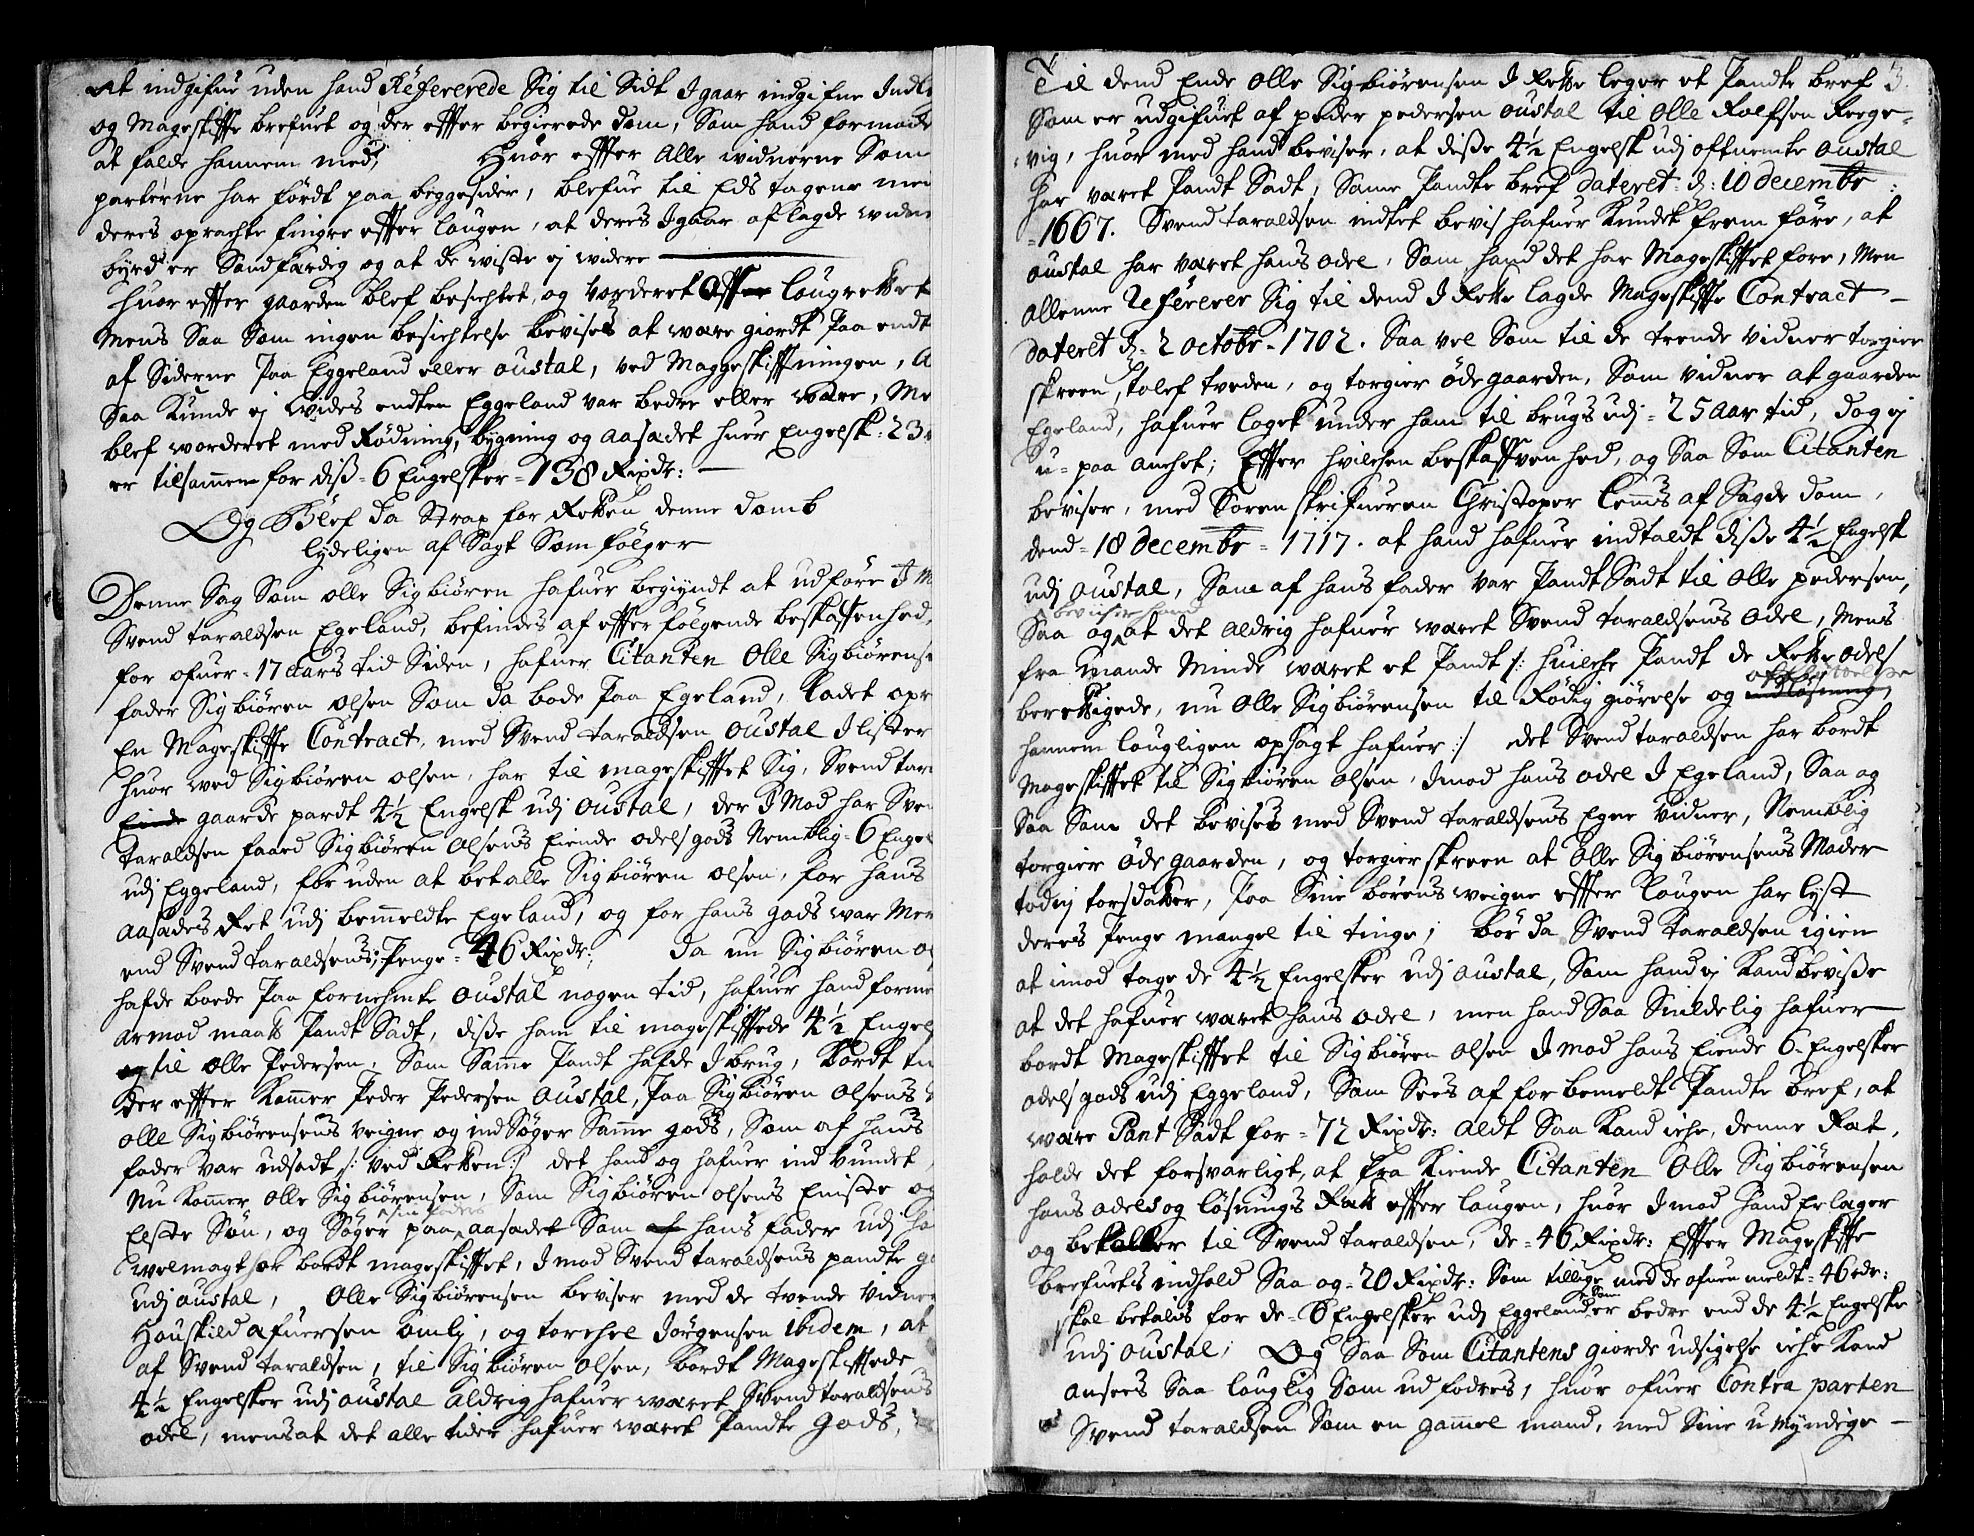 At indgifue uden hand Refererede Sig til Sidt Igaar indgifne Indl
og Mageskiffte brefuet og der effter begierede dom, Som hand formod
at falde hannem med, Huor effter Alle widnerne Som
parterne har fördt paa begge sider, blefue til Eds tagene med
deres oprachte fingre effter laugen, at deres Igaar aflagde widne
byrd er Sandfærdig og at de wiste ej widere
Huor effter gaarden blef besichtet og Vorderet Aff laugrettet
Mens Saa Som ingen besichtelse bevises at were giordt Paa endt
af Siderne Paa Eggeland eller oustal, ved Maggeskifftningen, A
Saa Kunde ej wides endten Eggeland var bedre eller wære, Me
blef worderet med Rödning, bygning og aasædet huer Engelsk: 23
er tilsammen for diss = 6 Engelsker = 138 Rixdr: —
Og Blef da Strax for Retten denne domb
lydeligen af Sagt Som fölger
Denne Sag Som olle Sigbiören hafuer begÿndt at udföre I M
Svend taraldsen Egeland, befindes af effterfölgende beskaffenhed,
for ofuer = 17 Aars tid Siden, hafuer Citanten Olle Sigbiörense
fader Sigbiören olsen Som da boede Paa Egeland, ladet opr
En Mageskiffte Contract, med Svend taraldsen oustal I lister
Huor ved Sigbiören olsen, har til mageskifftet Sig, Svend tar
Einde gaarde pardt 4½ Engelsk udj oustal, der I Mod har Sve
Taraldsen faaed Sigbiören Olsens Eiende odels gods Nemblig = 6 Engel
udj Eggeland, for uden at betalle Sigbiören olsen, for hans
aasædes Ret udj bemeldte Egeland, og for hans gods war Mer
end Svend taraldsens; Penge = 46 Rixdr: da nu Sigbiören o
hafde boede Paa fornefnte oustal nogen tid, hafuer hand forme
armod maat Pandt Sadt, disse ham til mageskiffede 4½ Engels
og til olle Pedersen, Som Samme Pandt hafde I brug,
der effter Kommer Peder Pedersen oustal, Paa Sigbiören olsens
olle Sigbiörensens Veigne og ind Söger Samme gods, Som af hans
fader var udsadt /: ved Retten:/ det hand og hafuer ind Vundet
Nu Kommer olle Sigbiörensen, Som Sigbiören olsens Eniste og
Elste Sön, og Söger paa sin faders aasædet Som af hans fader udj ha
welmagt har bordt mageskifftet, I mod Svend taraldsens pandte g
udj oustal, Olle Sigbiörensen beviser med de tvende Vidner
Houskild afuersen omlj, og torchel Jörgensen ibidem, at
af Svend taraldsen, til Sigbiören olsen, bordt Mageskifftede
4½ Engelsker udj austal Aldrig hafuer waret Svend taraldsens
odel, mens at det alle tider hafuer waret Pandte Gods,
3.
Til dend Ende olle Sigbiörensen I Rette leger et Pandte bref
Som er udgifuet af peder pedersen oustal til Olle Rolfsen Reege=
vig, huor med hand beviser, at disse 4½ Engelsk udj oftnemte oustal
har været Pandt Sadt, Same Pandte bref dateret d: 10 decembr:
= 1667. Svend taraldsen indtet bevis hafuer Kundet frem före, at
oustal har været hans odel, Som hand det har Mageskifftet fore, Men
allenne Refererer Sig til dend I Rette lagde Mageskiffte Contract —
dateret d: 2 octobr = 1702. Saa vel Som til de trende vidner torgier
skreen, tolef tveden, og torgier ödegaarden, Som vidner at gaarden
Egeland, hafuer laget under ham til brugs udj = 25 Aar tid, dog ej
u = paa anchet; Effter hvilchen beskaffvenhed, og Saa Som Citanten
beviser, med Sorenskrifueren Christoper Lemis af Sagde dom,
dend = 18 decembr = 1717. at hand hafuer indtaldt disse 4½ Engelsk
udj oustal, Som af hans fader var PandtSadt til olle pedersen,
Saa og beviser hand at det Aldrig hafuer waret Svend taraldsens odel, Mens
fra Mande Minde waret et Pandt /: huilche Pandt de Rette odels
berettigede, nu Olle Sigbiörensen til Rödiggiörelse og indlösning
hannem laugligen opsagt hafuer :/ det Svend taraldsen har bordt
Mageskifftet til Sigbiören olsen, I mod hans odel I Egeland, Saa og
Saa Som det bevises med Svend taraldsens Egne Vidner, Nemblig
torgier ödegaarden, og torgier skreen at Olle Sigbiörensens Moder
todnj torsdatter, Paa Sine börens weigne effter laugen har lyst
deres Penge mangel til tinge; bör da Svend taraldsen igien
at imod tage de 4½ Engelsker udj austal, Som hand ej Kand bevisse
at det hafuer waret hans odel, men hand Saa Snildelig hafuer
bordt Mageskifftet til Sigbiören olsen I mod hans Eiende 6 = Engelsker
odels gods udj Eggeland, Som Sees af for bemeldt Pandte bref, at
were Pant Sadt for = 72 Rixdr: aldt Saa Kand iche, denne Ret,
holde det forsvarligt, at fra Kiende Citanten olle Sigbiörensen
hans odels og lösnings Rett effter laugen, huor I mod hand Erlæger
og betaller til Svend taraldsen, de = 46 Rixdr: Effter Mageskiffte
brefuets indhold Saa og = 20 Rixdr: Som tillige med de ofuenmeldt = 46 rdr:
skal betalis for de = 6 Engelsker udj Eggeland som er bedre end de 4½ Engelske
udj oustal; Og Saa Som Citantens giorde udsigelse iche Kand
ansees Saa lauglig Som ud fodres, huor ofuer Contra parten
Svend taraldsen Som en gammel mand, med Sine u Myndige —